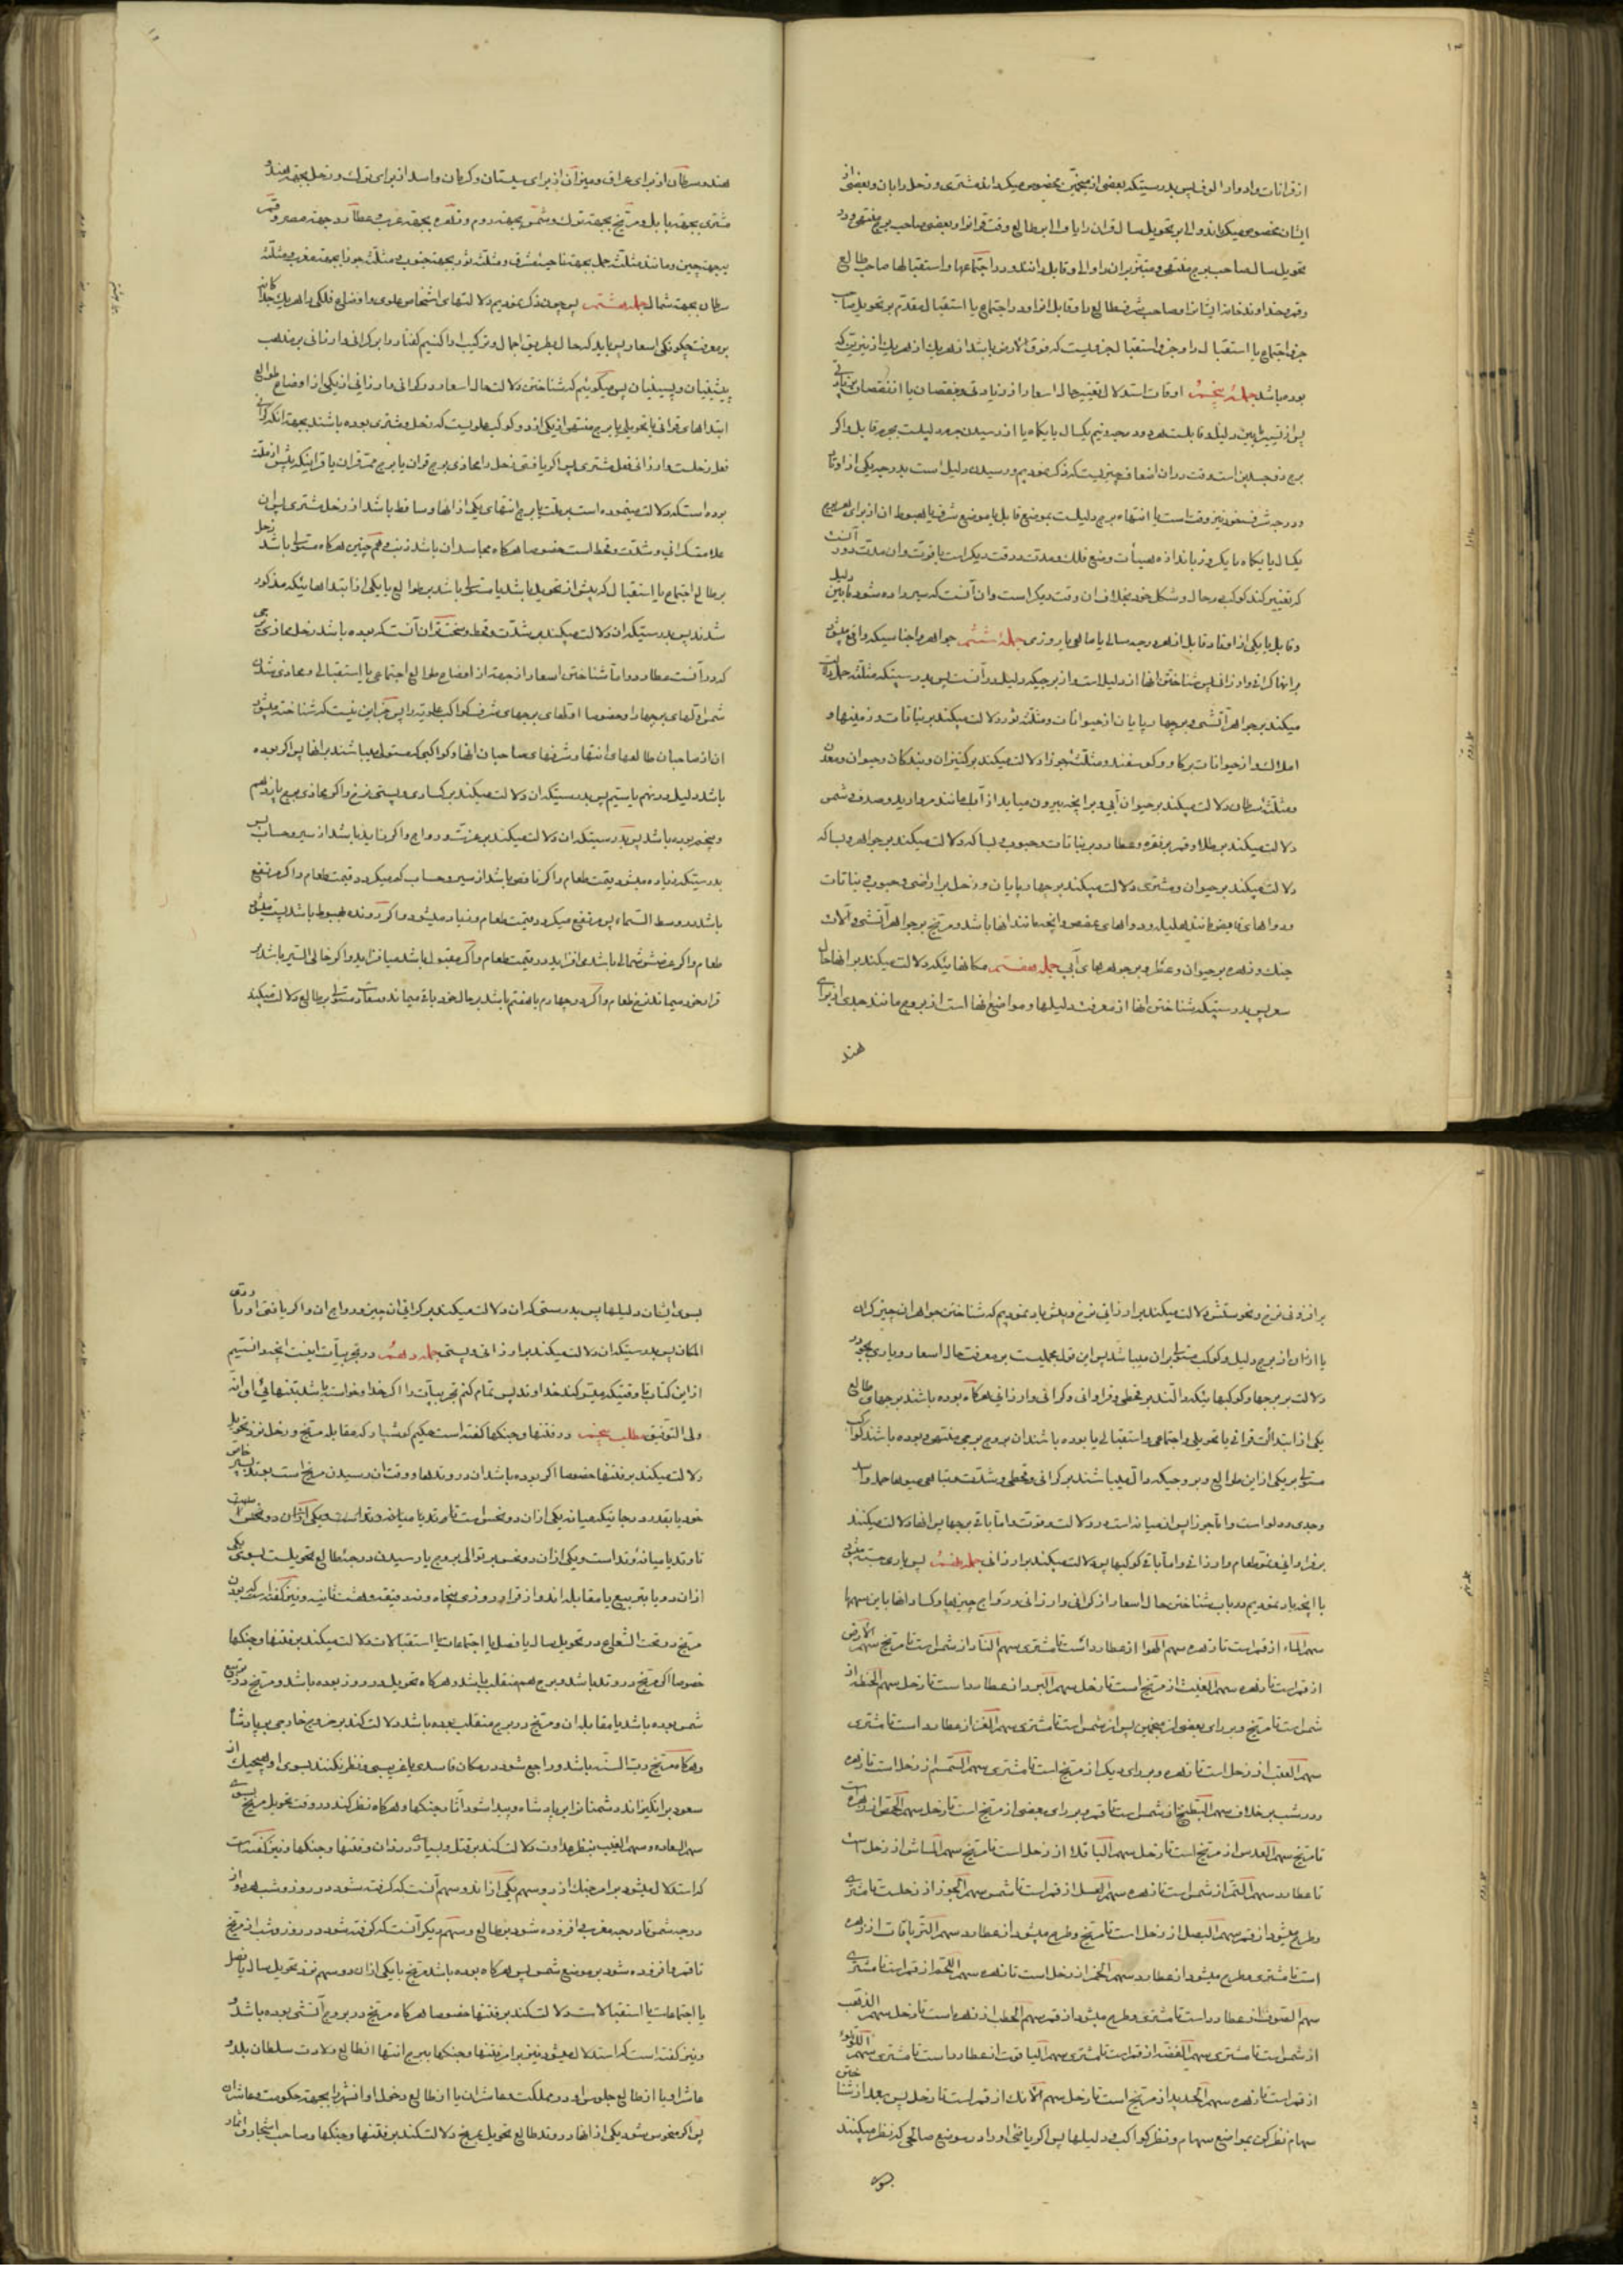 از قرانات و ادوار الوف پس بدرستیکه بعضی از منجمین مخصوص میکردانند مشتری و زحل را بان و بعضی از
ایشان مخصوص میکردانند والی بر تحویل سال قران را یا والی بر طالع وقت قران را و بعضی صاحب برج منتهی و در
تحویل سال صاحب برج منتهی و مبتز بران را و الی و قابل دانند و در اجتماعها و استقبالها صاحب طالع
وقت و خداوند خانه ایشانرا و صاحب شرف طالع یا و قابل انرا و در اجتماع یا استقبال مقدم بر تحویل صاحب
جزو اجتماع یا استقبال را و جزو استقبال جزویست که فوق الارض باشد از هر یک از نیرین که
بوده باشد جمله پنجم اوقات استدلال تغییر حال اسعار از زیادتی و نقصان یا از نقصان
پس از تسییر مابین دلیل و قابلست هر درجه بیکسال یا بیکماه یا از رسیدن جرم دلیلست بجرم قابل و اکر
برج ذوجسدین است وقت دران اضعاف چیزیست که ذکر نمودیم و رسیدن دلیل است بدرجه یکی از اوتاد
و درجه شرف خود نیز وقت است یا انتهاء برج دلیلست بموضع قابل یا موضع شرف یا هبوط ان از برای هر برج
یکسال یا یکماه یا یکروز باندازه هیئات وضع فلک و مدت و وقت دیکر است یا قوت و ان مدت دور آنست
که تغییر کند کوکب در حال و شکل خود بخلاف ان وقت دیکر است و ان آنست که سیر داده شود مابین دلیل
و قابل یا یکی از اوتاد قابل از هر درجه سالی یا ماهی یا روزی جمله ششم جواهر و اجناسیکه واقع میشود
بر انها کرانی و ارزانی پس شناختن انها از دلیل است و از برجیکه دلیل در آنست پس بدرستیکه مثلثه حمل دلالت
میکند بر جواهر آتشی و بر چهارپایان از حیوانات و مثلثه ثور دلالت میکند بر نباتات و زمینها و
املاک و از حیوانات بر کاو و کوسفند و مثلثه جوزا دلالت میکند بر کنیزان و بندکان و حیوان و معدن
و مثلثه سرطان دلالت میکند بر حیوان آبی و بر انچه بیرون میاید از آب مانند مروارید و صدف و شمس
دلالت میکند بر طلا و قمر بر نقره و عطارد بر نباتات و حبوب و بسا که دلالت میکند بر جواهر و بسا که
دلالت میکند بر حیوان و مشتری دلالت میکند بر چهارپایان و زحل بر اراضی و حبوب و نباتات
و دواهای قابض مانند هلیله و دواهای عفص و انچه مانند انها باشد و مریخ بر جواهر آتشی و آلات
جنک و زهره بر حیوان و عطر و بر جوهرهای آبی جمله هفتم مکانهائیکه دلالت میکند بر انها حال
سعر پس بدرستیکه شناختن انها از معرفت دلیلها و مواضع انها است از بروج مانند جدی از برای
هند
هند و سرطان از برای عراق و میزان از برای سیستان و کرمان و اسد از برای ترک و زحل بجهة هند و
مشتری بجهة بابل و مریخ بجهة ترک و شمس بجهة روم و زهره بجهة عرب و عطارد بجهة مصر و قمر
بجهة چین و مانند مثلثه حمل بجهة ناحیه مشرق و مثلثه ثور بجهة جنوب و مثلثه جوزا بجهة مغرب و مثلثه
سرطان بجهة شمال جمله هشتم پس چون ذکر نمودیم دلالتهای اشخاص علوی و اوضاع فلکی را هر یک جداکانه
بر معرفت چکونکی اسعار پس باید که حال بطریق اجمال و ترکیب ادا کنیم کفتار در ابر کرانی و ارزانی بر مذهب
پیشینیان و پسینیان پس میکوئیم که شناختن دلالت حال اسعار در کرانی و ارزانی از یکی از اوضاع طوالع
ابتداهای قرانی یا تحویلی یا برج منتهی از یکی از دو کوکب علویست که زحل و مشتری بوده باشند بجهة انکه کرانی
فعل زحلست و ارزانی فعل مشتری پس اکر یافتی زحل را محاذی برج قران یا برج ممر قران یا قرانیکه پیش از ملت
بوده است که دلالت مینموده است بر ملت یا برج انتهای یکی از انها و ساقط باشد از زحل مشتری پس ان
علامت کرانی و شدت و قحط است خصوصا هرکاه مجاسد ان باشد ذنب و همچنین هرکاه مستولی باشد زحل
بر طالع اجتماع یا استقبال که پیش از تحویل باشد یا مستولی باشد بر طوالع یا یکی از ابتداهائیکه مذکور
شدند پس بدرستیکه ان دلالت میکند بر شدت و قحط و سخت‌تر ان آنست که بوده باشد زحل محاذی برجی
که در آنست عطارد و اما شناختن اسعار از جهة از اوضاع طوالع اجتماعی یا استقبالی و محاذی شدن
شمس اولهای برجها را و خصوصا اولهای برجهای شرف کواکب علویه را پس جز این نیست که شناخته میشود
ان از صاحبان طالعهای انتها و شرفهای صاحبان انها و کواکبی که مستولی میباشند بر انها پس اکر بوده
باشد دلیل در نهم یا سیم پس بدرستیکه ان دلالت میکند بر کسادی و پستی نرخ و اکر محاذی برج یازدهم
و پنجم بوده باشد پس بدرستیکه ان دلالت میکند بر عزت و رواج و اکر زاید باشد از سیر و حساب پس
بدرستیکه زیاده میشود قیمت طعام و اکر ناقص باشد از سیر و حساب کم میکردد قیمت طعام و اکر مرتفع
باشد در وسط السماء پس مرتفع میکردد قیمت طعام و زیاد میشود و اکر رونده بهبوط باشد پست میشود
طعام و اکر عرضش شمالی باشد می‌افزاید در قیمت طعام و اکر مقبول باشد میافزاید و اکر خالی السیر باشد بر
قرار خود میماند نرخ طعام و اکر در چهارم یا هفتم باشد بر حال خود باقی میماند و سعادت مستولی بر طالع دلالت میکند
بر افزونی نرخ و نحوستش دلالت میکند بر ارزانی نرخ و پیش یاد نمودیم که شناختن جواهر ان چیز کران
یا ارزان از برج دلیل و کوکب مستولی بران میباشد پس این قول مجملیست بر معرفت حال اسعار و یاری بجوید در
دلالت بر برجها و کوکبهائیکه دالند بر قحطی و فراوانی و کرانی و ارزانی هرکاه بوده باشند برجهای طالع
یکی از ابتدائات قرانی یا تحویلی و اجتماعی و استقبالی یا بوده باشند ان بروج برجی منتهی و بوده باشند کواکب
مستولی بر یکی از این طوالع و بروجیکه دال میباشند بر کرانی و قحطی و شدت و تباهی میوها حمل و اسد
و جدی و دلو است و اما جوزا پس ان میانه است در دلالت و قوت و اما باقی برجها پس انها دلالت میکنند
بر فراوانی و نمو طعام و ارزانی و اما باقی کوکبها پس دلالت میکند بر ارزانی جمله نهم پس یاری جسته میشود
با انچه یاد نمودیم در باب شناختن حال اسعار از کرانی و ارزانی و رواج چیزها و کساد انها باین سهمها
سهم الماء از قمر است تا زهره سهم الهوا از عطارد است تا مشتری سهم النار از شمس است تا مریخ سهم الارض
از قمر است تا زحل سهم الغیث از مریخ است تا زحل سهم البرد از عطارد است تا زحل سهم الحنطه از
شمس است تا مریخ و بر رای بعضی از منجمین پس از شمس است تا مشتری سهم الغنا از عطارد است تا مشتری
سهم العنب از زحل است تا زهره و بر رای دیک از مریخ است تا مشتری سهم السمسم از زحل است تا زهره
و در شب بر خلاف سهم البطیخ از شمس است تا قمر و بر رای بعضی از مریخ است تا زحل سهم الحمص از زهره است
تا مریخ سهم العدس از مریخ است تا زحل سهم الباقلا از زحل است تا مریخ سهم الماش از زحل است
تا عطارد سهم التمر از شمس است تا زهره سهم العسل از قمر است تا شمس سهم الجوز از زحلست تا مشتری
و طرح میشود از قمر سهم البصل از زحل است تا مریخ و طرح میشود از عطارد سهم التریاقات از زهره
است تا مشتری و طرح میشود از عطارد سهم الخمر از زحل است تا زهره سهم اللحم از قمر است تا مشتری
سهم الصوف از عطارد است تا مشتری و طرح میشود از قمر سهم الحطب از زهره است تا زحل سهم الذهب
از شمس است تا مشتری سهم الفضه از قمر است تا مشتری سهم الیاقوت از عطارد است تا مشتری سهم اللؤلؤ
از قمر است تا زهره سهم الحدید از مریخ است تا زحل سهم الآنک از قمر است تا زحل پس بعد از شناختن
سهام نظر کن بمواضع سهام و نظر کواکب و دلیلها پس اکر یافتی او را در موضع صالحی که نظر میکنند
بسوی
بسوی ایشان دلیلها پس بدرستی که ان دلالت میکند بر کرانی ان چیز و رواج ان و اکر یافتی او را ردی
المکان پس بدرستیکه ان دلالت میکند بر ارزانی و پستی جمله دهم در تجربیات اینست انچه دانستیم
از این کتاب تا وقتیکه میتوکند خداوند پس تمام کنم تجربیات را اکر خدا خواسته باشد بتنهائی او انه
ولی التوفیق مطلب پنجم در فتنها و جنکها کفته است حکیم کوشیار که مقابله مریخ و زحل نزد تحویل
دلالت میکند بر فتنها خصوصا اکر بوده باشد ان در وتدها و وقت ان رسیدن مریخ است بوتد بسیر خاص
خود یا بقدر درجاتیکه میانه یکی از ان دو نحس است تا وتد یا میانه وتد است و یکی از ان دو نحس
تا وتد یا میانه وتد است و یکی از ان دو نحس بر توالی بروج یا رسیدن درجه طالع تحویلست بسوی یکی
از ان دو یا بتربیع یا مقابله اندو از قرار هر روزی پنجاه و نه دقیقه و هشت ثانیه و نیز کفته است که بودن
مریخ در تحت الشعاع در تحویل سال یا فصل یا اجتماعات یا استقبالات دلالت میکند بر فتنها و جنکها
خصوصا اکر مریخ در وتد باشد و برج هم منقلب باشد و هرکاه تحویل در روز بوده باشد و مریخ در تربیع
شمس بوده باشد یا مقابله ان و مریخ در برج منقلب بوده باشد دلالت کند بر خروج خارجی بر پادشاه
و هرکاه مریخ رب السنه باشد و راجع شود در مکان فاسدی یا غریبی و نظر نکنند بسوی او هیچیک از
سعود برانکیزاند دشمنانرا بر پادشاه و پیدا شود آثار جنکها و هرکاه نظر کند در وقت تحویل مریخ بسوی
سهم السعاده و سهم الغیب بنظر عداوت دلالت کند بر قتل و بسیاری دزدان و فتنها و جنکها و نیز کفته است
که استدلال میشود بر امر جنک از دو سهم یکی از اندو سهم آنست که کرفته شود در روز و شب هر دو از
درجه شمس تا درجه مغرب و افزوده شود بر طالع و سهم دیکر آنست که کرفته شود در روز و شب از مریخ
تا قمر و افزوده شود بر موضع شمس پس هرکاه بوده باشد مریخ با یکی از ان دو سهم نزد تحویل سال یا فصل
یا اجتماعات یا استقبالات دلالت کند بر فتنها خصوصا هرکاه مریخ در بروج آتشی بوده باشد و
و نیز کفته است که استدلال میشود نیز بر امر فتنها و جنکها ببرج انتها از طالع ولادت سلطان بلد و
عاشر او یا از طالع جلوس او در مملکت و عاشر ان یا از طالع دخول او انشهر را بجهة حکومت و عاشر ان
پس اکر منحوس شود یکی از انها در وتد طالع تحویل بمریخ دلالت کند بر فتنها و جنکها و صاحب